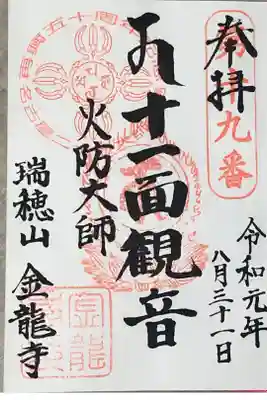 奉拝
九番
令和元年
八月三十一日
十一面観音
火防大師
瑞穂山 金龍寺